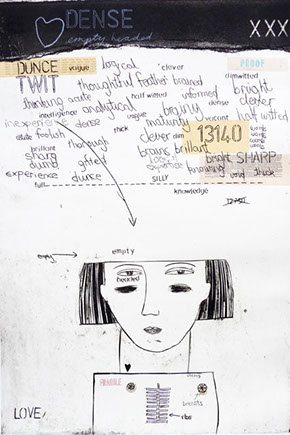 DENSE
empty headed
XXX
DUNCE vague logical clever PROOF
TWIT thoughtful feather brained dimwitted
thinking acute half witted informed bright
intelligence analytical vague inquiry dense clever
inexperience dense maturity half witted
astute foolish thick clever dim 13140
brilliant thorough brains brilliant
sharp bright SHARP
dumb gifted knowing void thick
experience dunce SILLY
full knowledge
empty
headed
FRAGILE
breasts
ribs
LOVE,